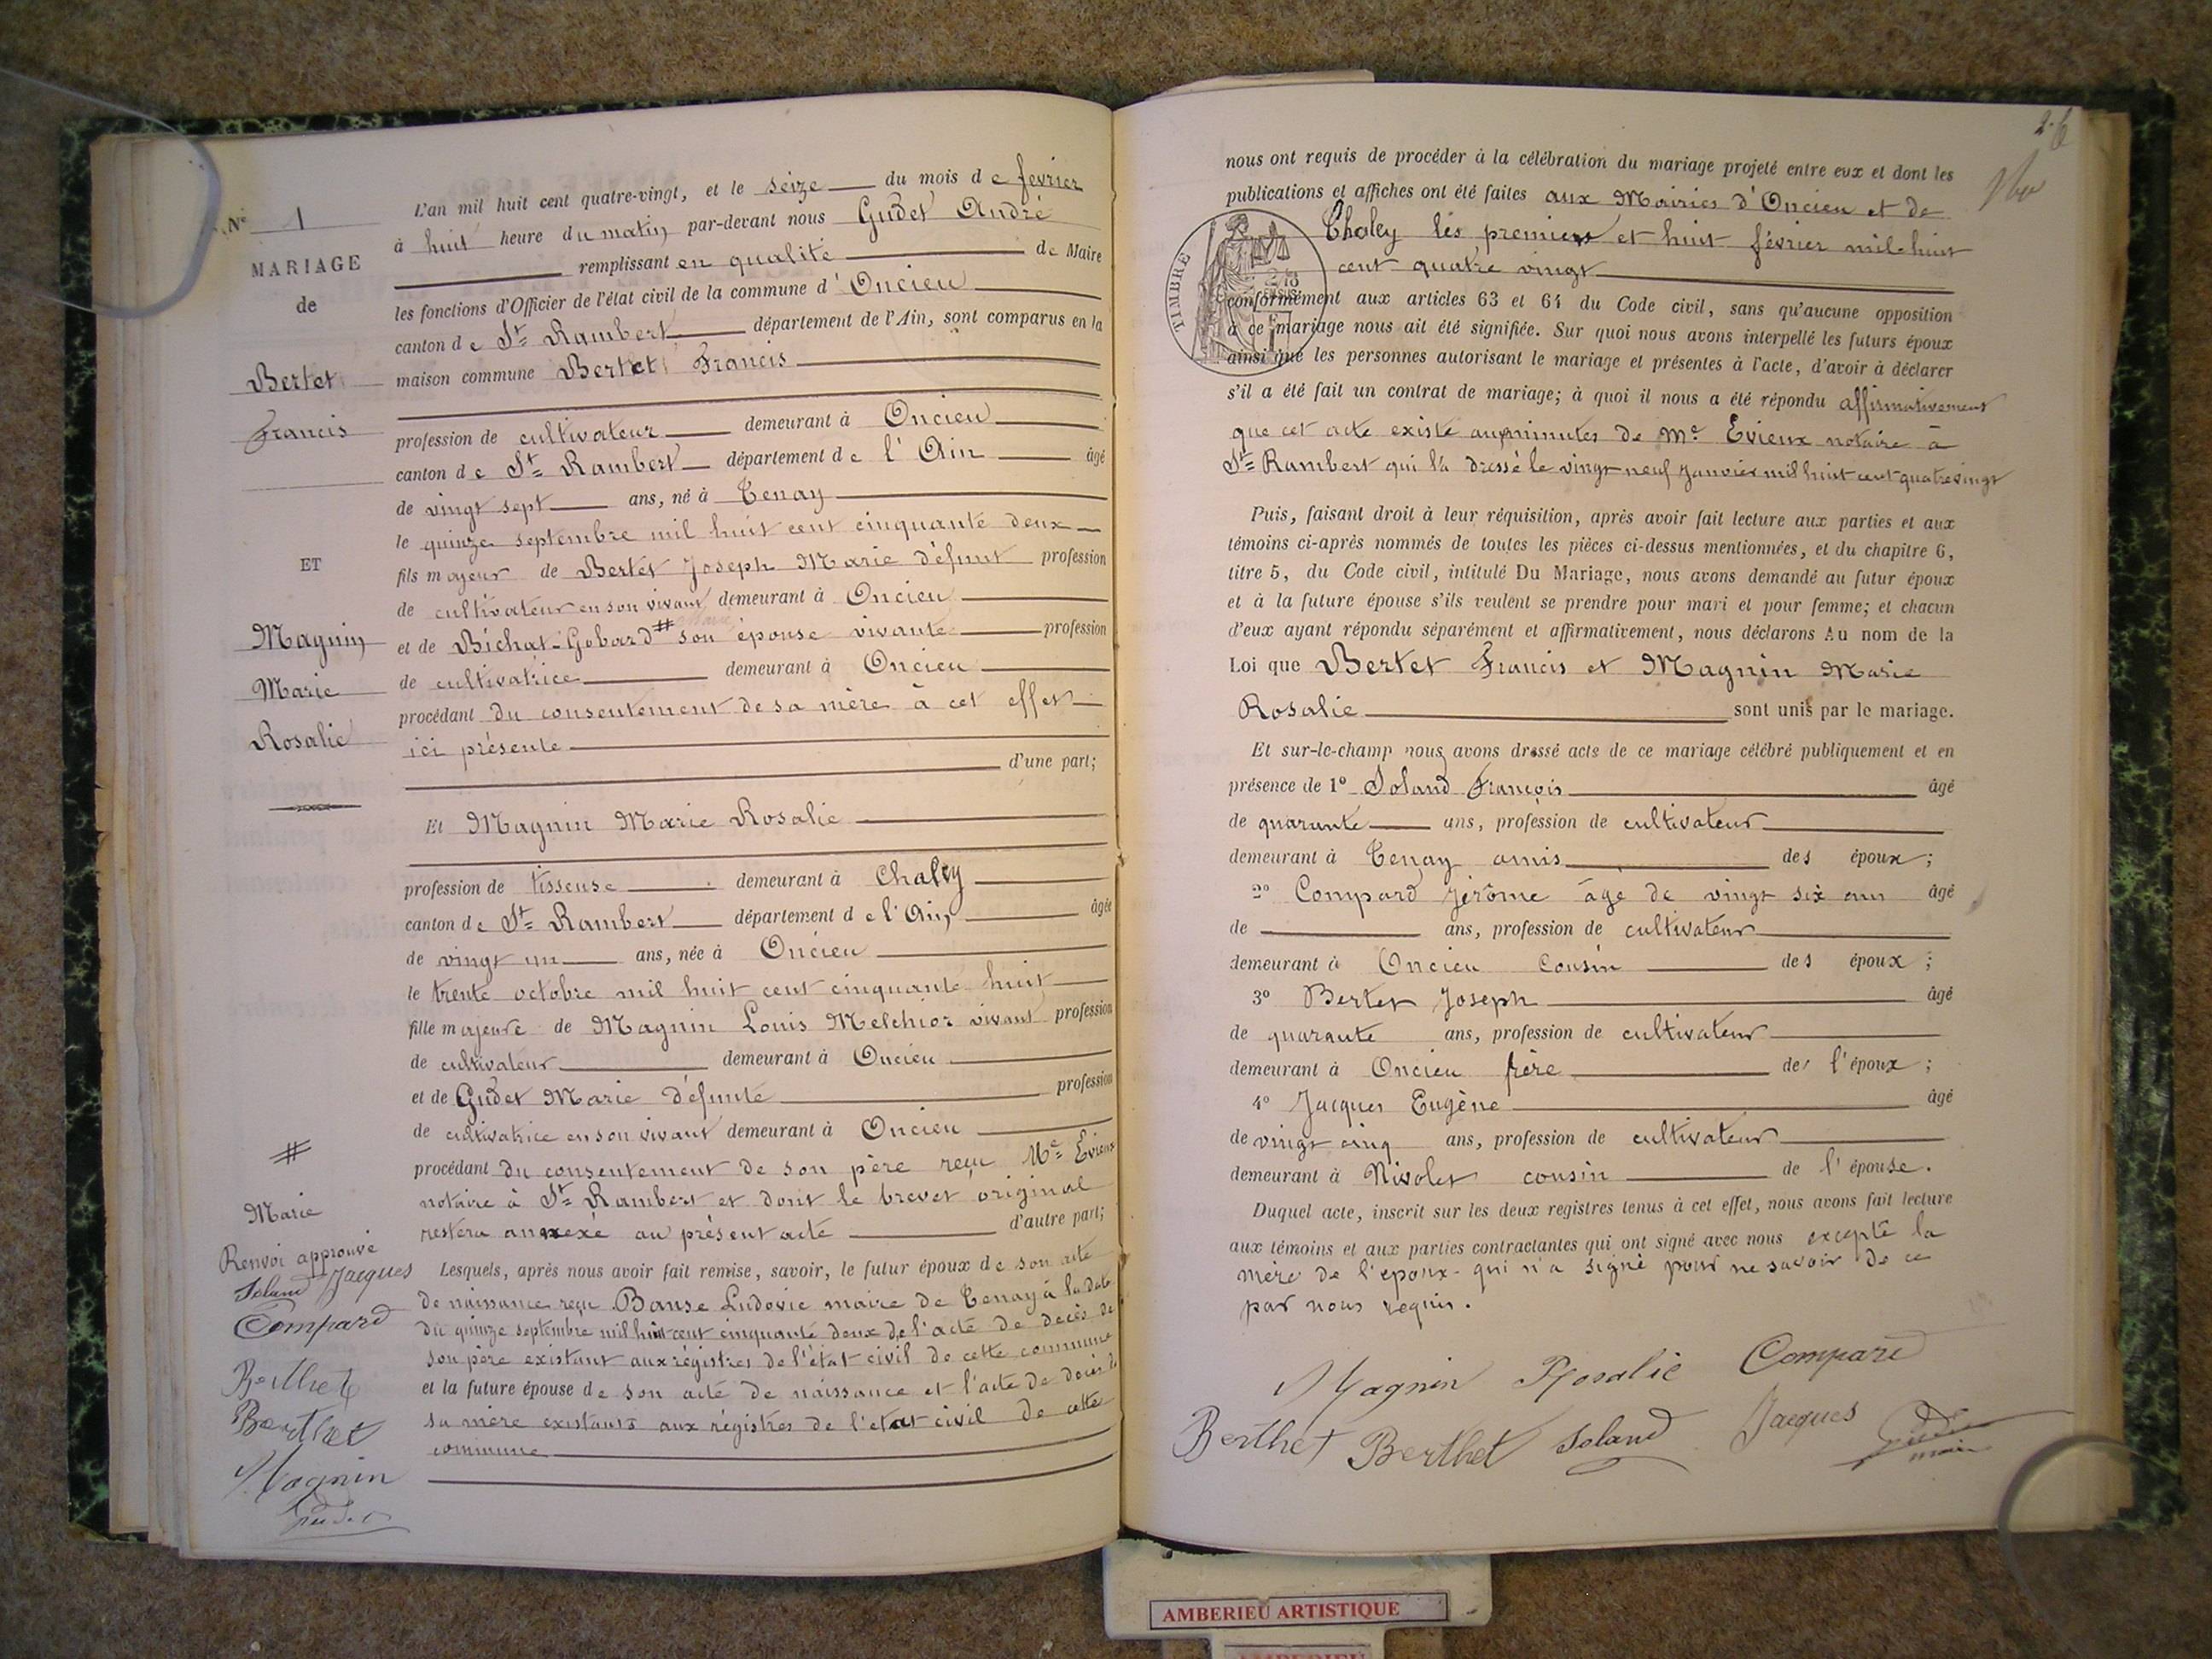 N° 1
MARIAGE
de
Bertet
Francis
ET
Magnin
Marie
Rosalie
L'an mil huit cent quatre-vingt, et le seize du mois de février
à huit heure du matin par-devant nous Gudet André
remplissant en qualité de Maire
les fonctions d'Officier de l'état civil de la commune d'Oncieu
canton de St Rambert département de l'Ain, sont comparus en la
maison commune Bertet Francis
profession de cultivateur demeurant à Oncieu
canton de St Rambert département de l'Ain âgé
de vingt sept ans, né à Tenay
le quinze septembre mil huit cent cinquante deux
fils majeur de Bertet Joseph Marie défunt profession
de cultivateur en son vivant demeurant à Oncieu
et de Bichat-Gobard # son épouse vivante profession
de cultivatrice demeurant à Oncieu
procédant du consentement de sa mère à cet effet
ici présente
d'une part;
Et Magnin Marie Rosalie
profession de tisseuse demeurant à Chaley
canton de St Rambert département de l'Ain âgée
de vingt un ans, née à Oncieu
le trente octobre mil huit cent cinquante huit
fille majeure de Magnin Louis Melchior vivant profession
de cultivateur demeurant à Oncieu
et de Gudet Marie défunte profession
de cultivatrice en son vivant demeurant à Oncieu
procédant du consentement de son père reçu Me Evieux
notaire à St Rambert et dont le brevet original
restera annexé au présent acte d'autre part;
Lesquels, après nous avoir fait remise, savoir, le futur époux de son acte
de naissance reçu Banse Ludovic maire de Tenay à la date
du quinze septembre mil huit cent cinquante deux de l'acte de décès de
son père existant aux régistres de l'état civil de cette commune
et la future épouse de son acte de naissance et l'acte de décès de
sa mère existants aux régistres de l'état civil de cette
commune
#
Marie
Renvoi approuvé
Soland Jacques
Compard
Berthet
Berthet
Magnin
Gudet
2.6
nous ont requis de procéder à la célébration du mariage projeté entre eux et dont les
publications et affiches ont été faites aux Mairies d'Oncieu et de
Chaley les premiers et huit février mil huit
cent quatre vingt
TIMBRE
conformément aux articles 63 et 64 du Code civil, sans qu'aucune opposition
à ce mariage nous ait été signifiée. Sur quoi nous avons interpellé les futurs époux
ainsi que les personnes autorisant le mariage et présentes à l'acte, d'avoir à déclarer
s'il a été fait un contrat de mariage; à quoi il nous a été répondu affirmativement
que cet acte existe aux minutes de Me Evieux notaire à
St Rambert qui l'a dressé le vingt neuf Janvier mil huit cent quatre vingt
Puis, faisant droit à leur réquisition, après avoir fait lecture aux parties et aux
témoins ci-après nommés de toutes les pièces ci-dessus mentionnées, et du chapitre 6,
titre 5, du Code civil, intitulé Du Mariage, nous avons demandé au futur époux
et à la future épouse s'ils veulent se prendre pour mari et pour femme; et chacun
d'eux ayant répondu séparément et affirmativement, nous déclarons Au nom de la
Loi que Bertet Francis et Magnin Marie
Rosalie sont unis par le mariage.
Et sur-le-champ nous avons dressé acte de ce mariage célébré publiquement et en
présence de 1° Soland François âgé
de quarante ans, profession de cultivateur
demeurant à Tenay amis des époux;
2° Compard Jérôme âgé de vingt six ans âgé
de ans, profession de cultivateur
demeurant à Oncieu Cousin des époux;
3° Bertet Joseph âgé
de quarante ans, profession de cultivateur
demeurant à Oncieu frère de l'époux;
4° Jacques Eugène âgé
de vingt cinq ans, profession de cultivateur
demeurant à Nivolet cousin de l'épouse.
Duquel acte, inscrit sur les deux registres tenus à cet effet, nous avons fait lecture
aux témoins et aux parties contractantes qui ont signé avec nous excepté la
mère de l'époux qui n'a signé pour ne savoir de ce
par nous requis.
Magnin Rosalie Compard
Berthet Berthet Soland Jacques Gudet
maire
AMBERIEU ARTISTIQUE
AMBERIEU